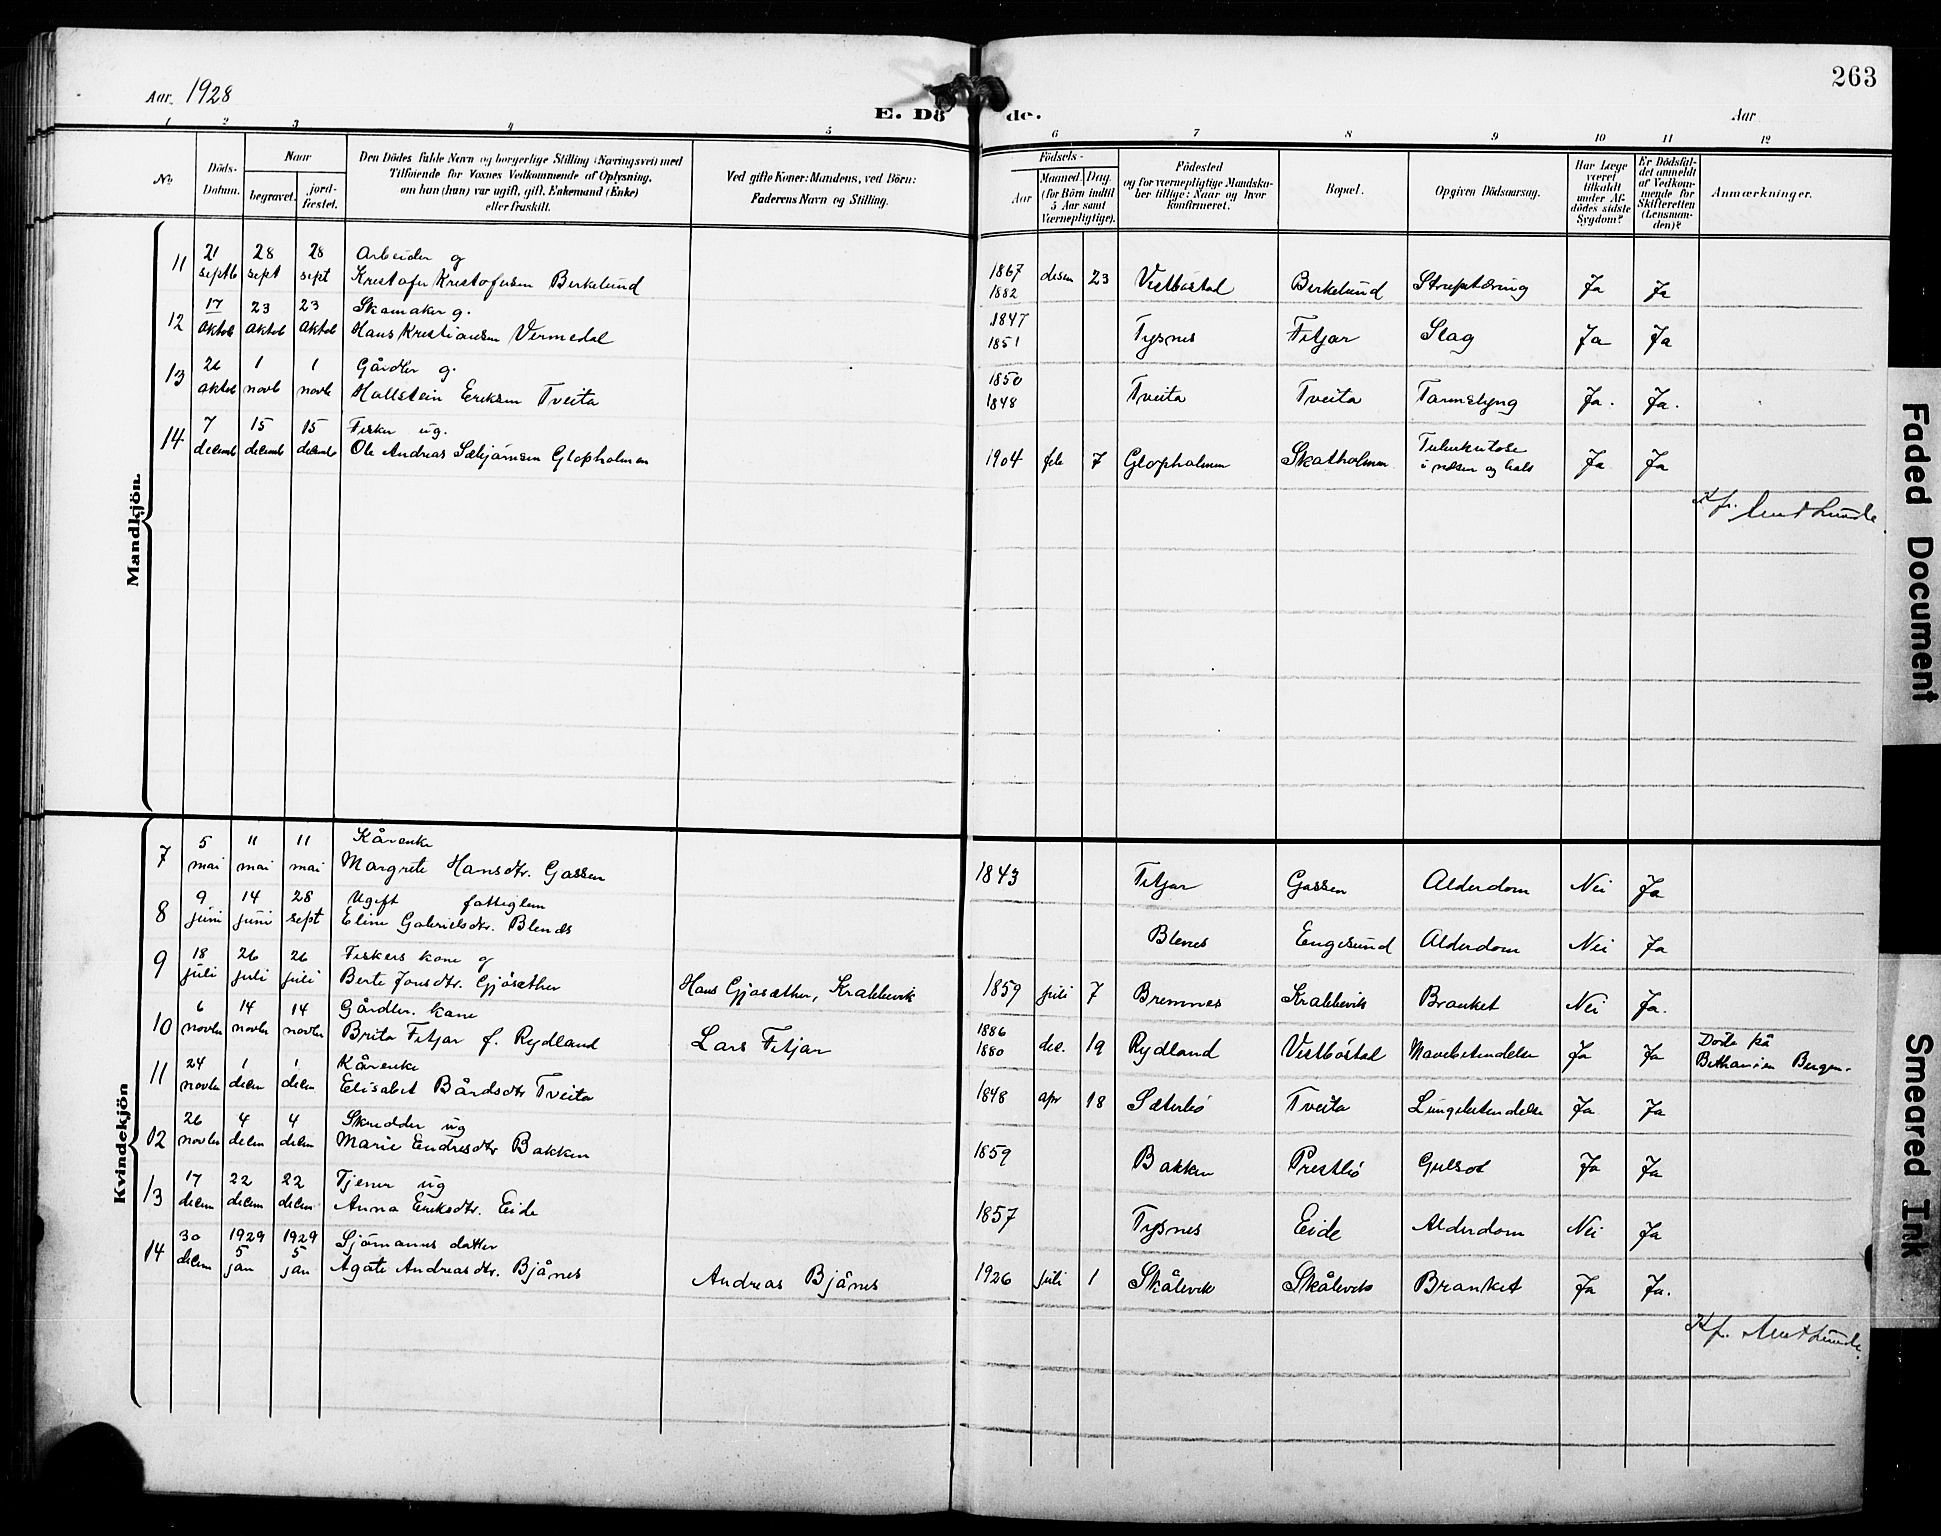 263
Aar 1928
E. Dö de.
Aar
1 2 3 4 5 6 7 8 9 10 11 12
No.
Döds-Datum.
Naar
begravet.
jord-fæstet.
Den Dödes fulde Navn og borgerlige Stilling (Næringsvei) med
Tilföiende for Voxnes Vedkommende af Oplysning,
om han (hun) var ugift, gift, Enkemand (Enke)
eller fraskilt.
Ved gifte Koner: Mandens, ved Börn:
Faderens Navn og Stilling.
Födsels-
Aar
Maaned. Dag
(for Börn indtil
5 Aar samt
Værnepligtige).
Födested
og for værnepligtige Mandska-
ber tillige: Naar og hvor
konfirmeret.
Bopæl.
Opgiven Dödsaarsag.
Har Læge
været
tilkaldt
under Af-
dödes sidste
Sygdom?
Er Dödsfal-
det anmeldt
af Vedkom-
mende for
Skifteretten
(Lensman-
den)?
Anmærkninger.
Mandkjön.
11 21 septb 28 sept 28 sept Arbeider g
Kristofer Kristofersen Birkelund 1867 1882 desem 23 Vestbøstad Birkelund Struptæring Ja Ja
12 17 aktob 23 aktob 23 aktob Skomaker g.
Hans Kristiansen Vermedal 1847 1851 Tysnes Fitjar Slag Ja Ja
13 26 aktob 1 novb 1 novb Gårdbr g.
Hallstein Eriksen Tveita 1850 1848 Tveita Tveita Tarmslyng Ja. Ja.
14 7 decemb 15 decemb 15 decemb Fisker ug.
Ole Andreas Sæbjørnsen Glopholmen 1904 feb 7 Glopholmen Skatholmen Tuberkulose
i næsen og hals Ja Ja
Kf. Lunde
Kvindekjön
7 5 mai 11 mai 11 mai Kårenke
Margrete Hansdtr. Gassen 1843 Fitjar Gassen Alderdom Nei Ja
8 9 juni 14 juni 28 sept Ugift fattiglem
Eline Gabrielsdtr. Blenes Blenes Engesund Alderdom Nei Ja
9 18 juli 26 juli 26 juli Fiskers kone g
Berte Jonsdtr. Gjøsæther Hans Gjøsæther, Krabbevik 1859 juli 7 Bremnes Krabbevik Brænket Nei Ja.
10 6 novbr 14 novbr 14 novbr Gårdbr. kone
Brita Fitjar f. Rydland Lars Fitjar 1886 1880 dec. 19 Rydland Vestbøstad Mavebetendelse Ja Ja Døde på
Bethanien Bergen.
11 24 novbr 1 decm 1 decm Kårenke
Elisabet Bårdsdtr Tveita 1848 apr 18 Sæterbø Tveita Lungebetendelse Ja Ja
12 26 novbr 4 decm 4 decm Skredder ug
Marie Endresdtr Bakken 1859 Bakken Prestbø Gulsot Ja Ja
13 17 decem 22 decem 22 decem Tjener ug
Anna Eriksdtr. Eide 1857 Tysnes Eide Alderdom Nei Ja
14 30 decem 1929 5 jan 1929 5 jan Sjømanns datter
Agate Andreasdtr. Bjånes Andreas Bjånes 1926 juli 1 Skålevik Skålevik Brænket Ja Ja.
Kf. Lunde.
Faded Document
Smeared Ink